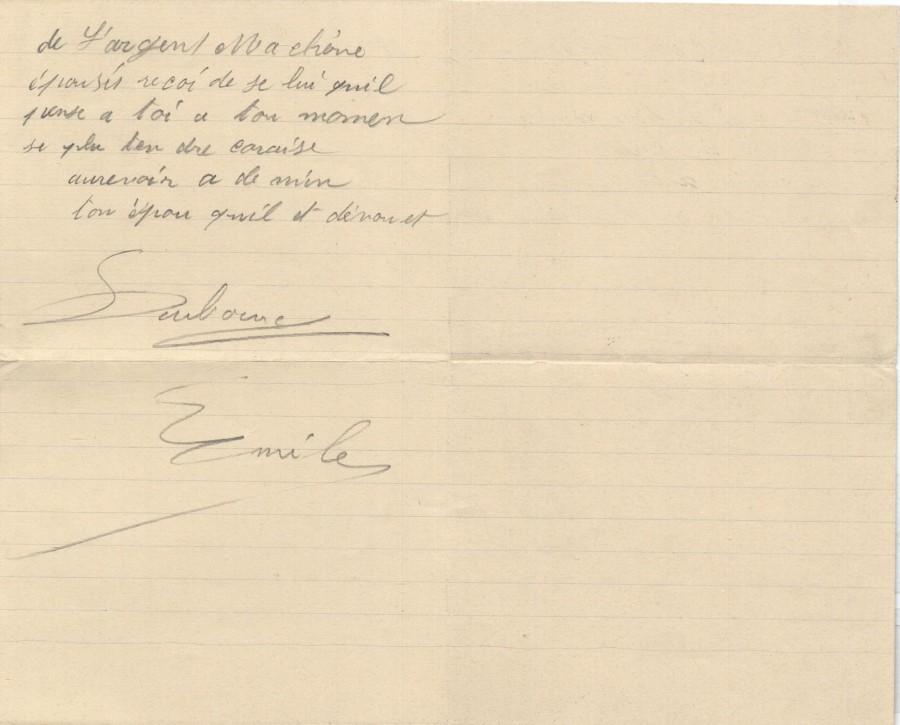 de L'argent Ma chère
épousis reçoi de se lui quil
pense a toi a tou momen
se plu ten dre caraise
aurevoir a de min
ton épou quil et dévouet
Emile